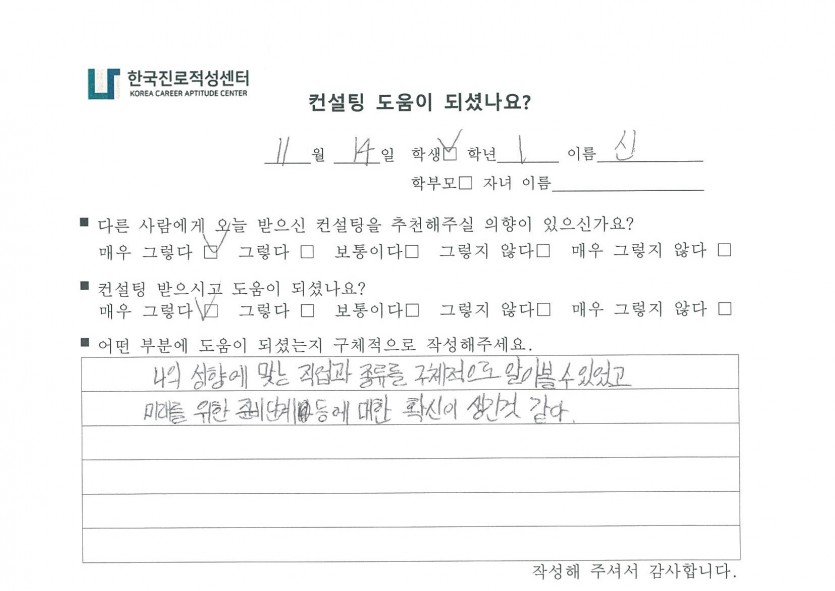 한국진로적성센터
KOREA CAREER APTITUDE CENTER
컨설팅 도움이 되셨나요?
11월 14일 학생☑ 학년 1 이름 신
학부모□ 자녀 이름
■ 다른 사람에게 오늘 받으신 컨설팅을 추천해주실 의향이 있으신가요?
매우 그렇다 ☑ 그렇다 □ 보통이다□ 그렇지 않다□ 매우 그렇지 않다 □
■ 컨설팅 받으시고 도움이 되셨나요?
매우 그렇다☑ 그렇다 □ 보통이다□ 그렇지 않다□ 매우 그렇지 않다 □
■ 어떤 부분에 도움이 되셨는지 구체적으로 작성해주세요.
나의 성향에 맞는 직업과 종류를 구체적으로 알아볼 수 있었고
미래를 위한 준비단계 등에 대한 확신이 생긴것 같다.
작성해 주셔서 감사합니다.